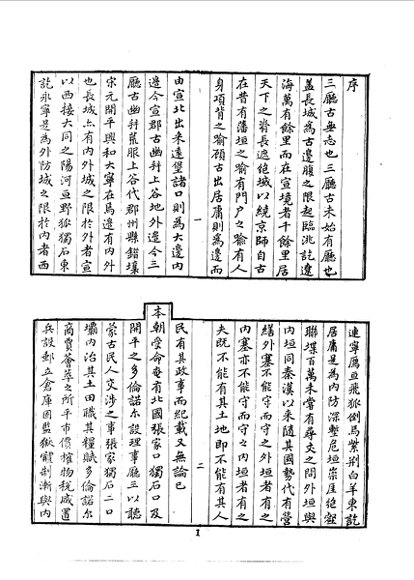 序
三廳古無志也三廳古未始有廳也
蓋長城為古邊腹之限起臨洮訖遼
海萬有餘里而在宣境者千餘里居
天下之脊長遮絶域以繞京師自古
在昔有藩垣之喻有門戶之喻有人
身項背之喻顧古出居庸則為邊而
一
由宣北出來遠堡諸口則為大邊内
邊今宣郡古幽州上谷地外邊今三
廳古幽州荒服上谷代郡州縣錯壤
宋元開平興和大寧在焉邊有内外
也長城亦有内外城之限於外者宣
以西接大同之陽河亘野狐獨石東
訖永寧是為外防城之限於内者西
連寧鴈亘飛狐倒馬紫荆白羊東訖
居庸是為内防深塹危垣崇崖絶壑
聯堞百萬未嘗有尋丈之間外垣與
内垣同秦漢以來隨其國勢代有營
繕外塞不能守而守之外垣者有之
内塞亦不能守而守之内垣者有之
夫既不能有其土地即不能有其人
二
民有其政事而紀載又無論已
本朝受命奄有北國張家口獨石口及
開平之多倫諾尔設理事廳三以聽
蒙古民人交涉之事張家獨石二口
壩内治其土田職其糧賦多倫諾尔
商賈薈萃之所平市價榷物税咸置
兵設郵立倉庫囹圄獄讞制漸與内
1